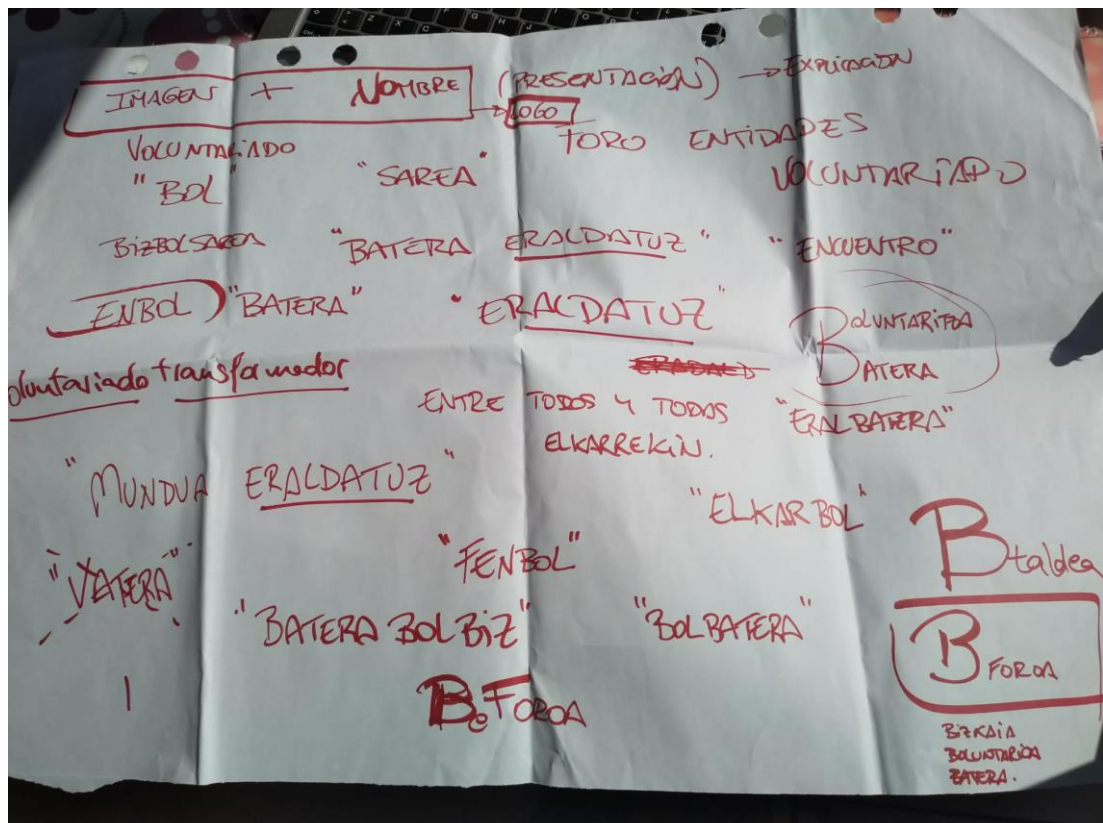 IMAGEN + NOMBRE (PRESENTACIÓN) → EXPLICACIÓN
LOGO
VOLUNTARIADO
FORO ENTIDADES
VOLUNTARIADO
"BOL" "SAREA"
BIZBOLSAREA "BATERA ERALDATUZ" "ENCUENTRO"
ENBOL "BATERA" "ERALDATUZ"
BOLUNTARITZA
BATERA
voluntariado transformador
ENTRE TODOS Y TODAS
ELKARREKIN.
"ERALBATERA"
"MUNDUA ERALDATUZ"
"ELKARBOL"
"FENBOL"
B taldea
"BATERA BOLBIZ" "BOLBATERA"
B FOROA
Be FOROA
BIZKAIA
BATERA.